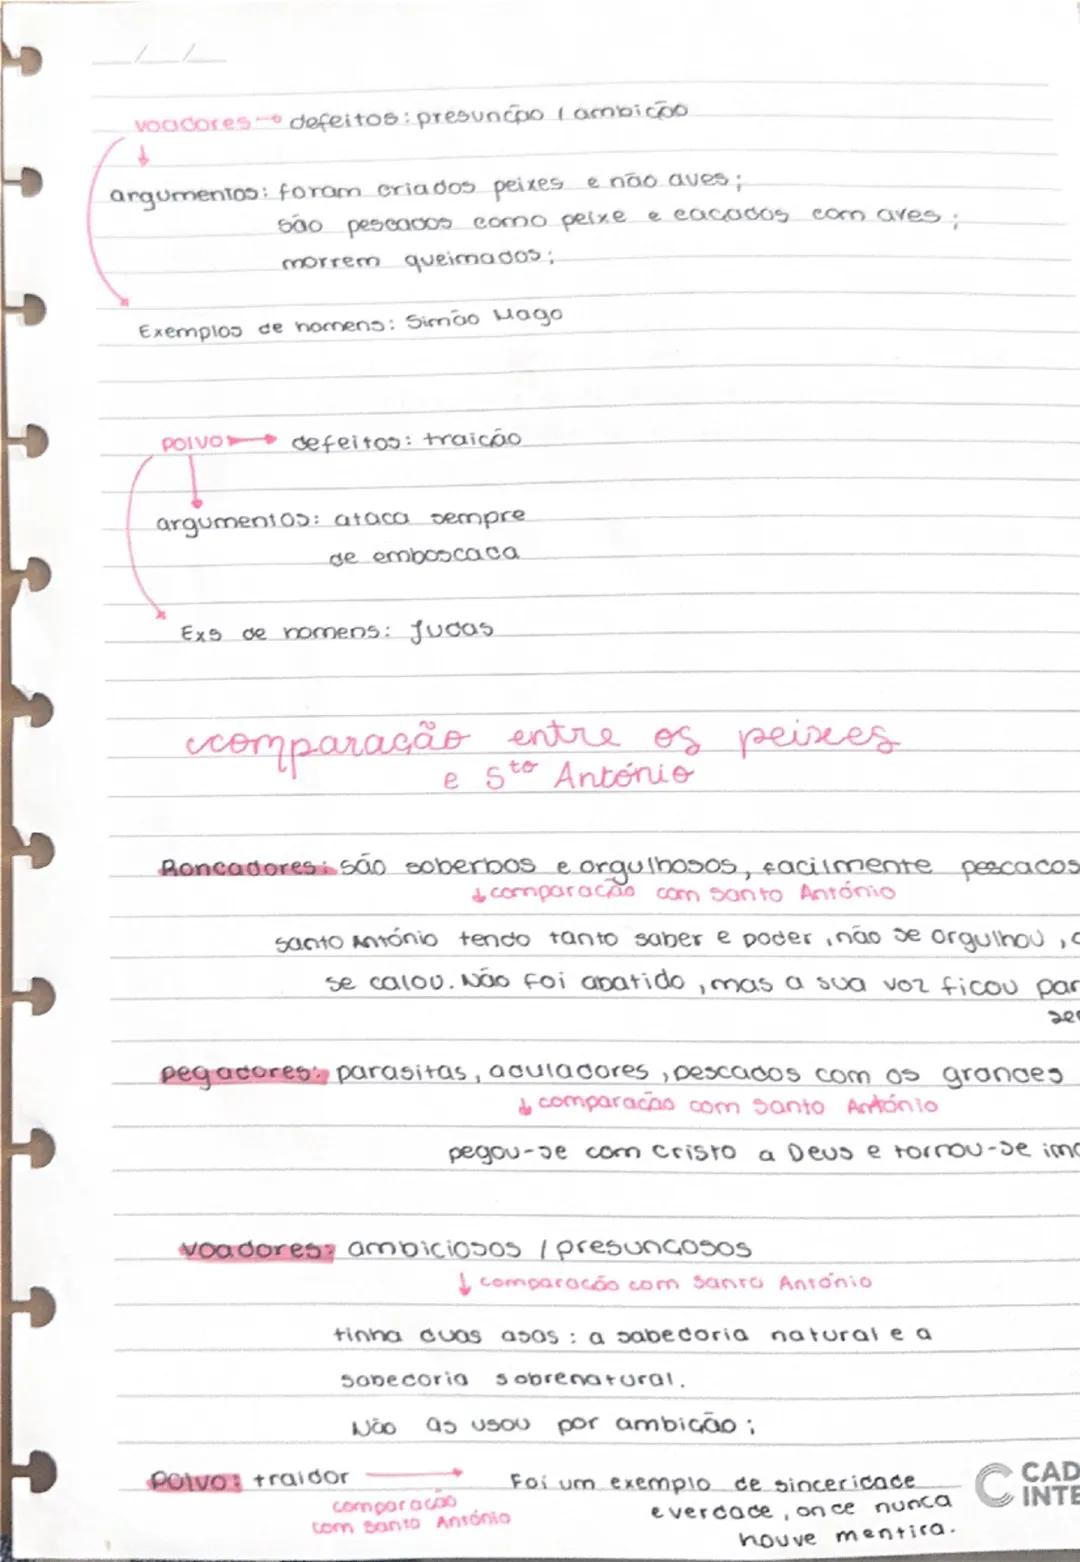 voadores → defeitos: presunção / ambição
argumentos: foram criados peixes e não aves;
são pescados como peixe e caçados com aves;
morrem queimados;
Exemplos de homens: Simão Mago
polvo → defeitos: traição
argumentos: ataca sempre
de emboscada
Exs de homens: Judas
comparação entre os peixes
e Sto António
Roncadores: são soberbos e orgulhosos, facilmente pescados
↓ comparação com Santo António
Santo António tendo tanto saber e poder, não se orgulhou,
se calou. Não foi abatido, mas a sua voz ficou par
ser
pegadores: parasitas, aduladores, pescados com os grandes
↓ comparação com Santo António
pegou-se com Cristo a Deus e tornou-se imo
voadores: ambiciosos / presunçosos
↓ comparação com Santo António
tinha duas asas: a sabedoria natural e a
sabedoria sobrenatural.
Não as usou por ambição;
polvo: traidor → Foi um exemplo de sinceridade
comparação e verdade, onde nunca
com Santo António houve mentira.
CAD
INTE